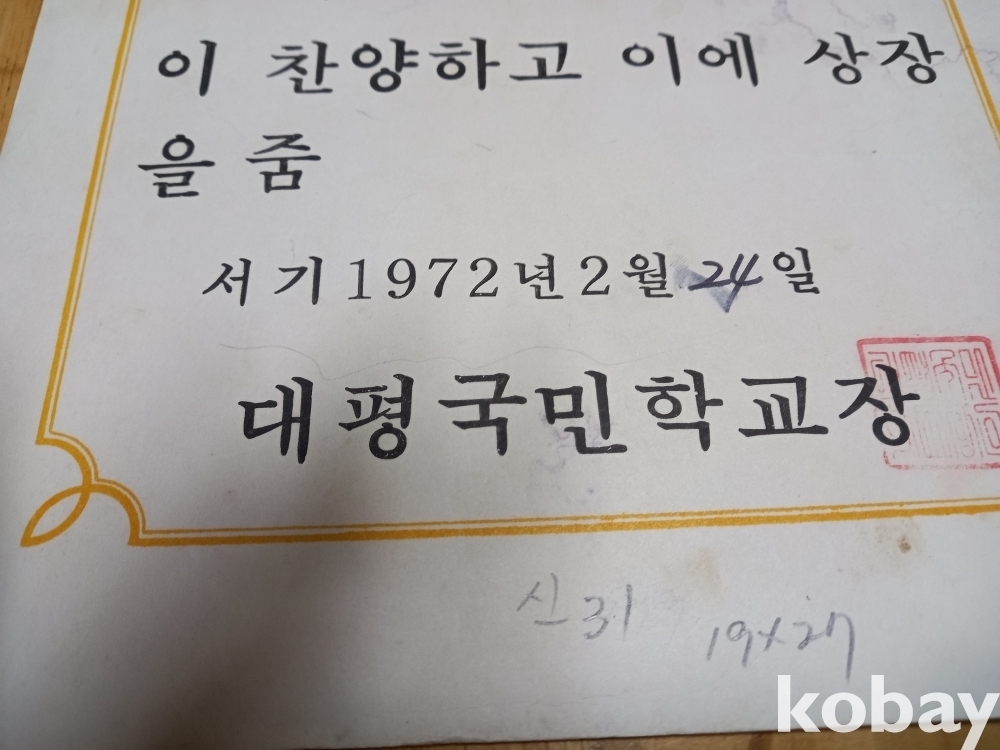 이 찬양하고 이에 상장
을 줌
서기 1972년 2월 24일
대평국민학교장
신 31 19x27
kobay